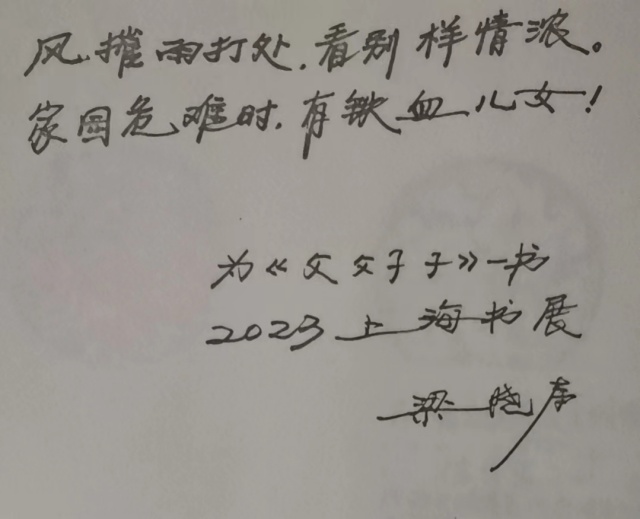 风摧雨打处，看别样情浓。
家国危难时，有铁血儿女！
为《父父子子》一书
2023上海书展
梁晓声